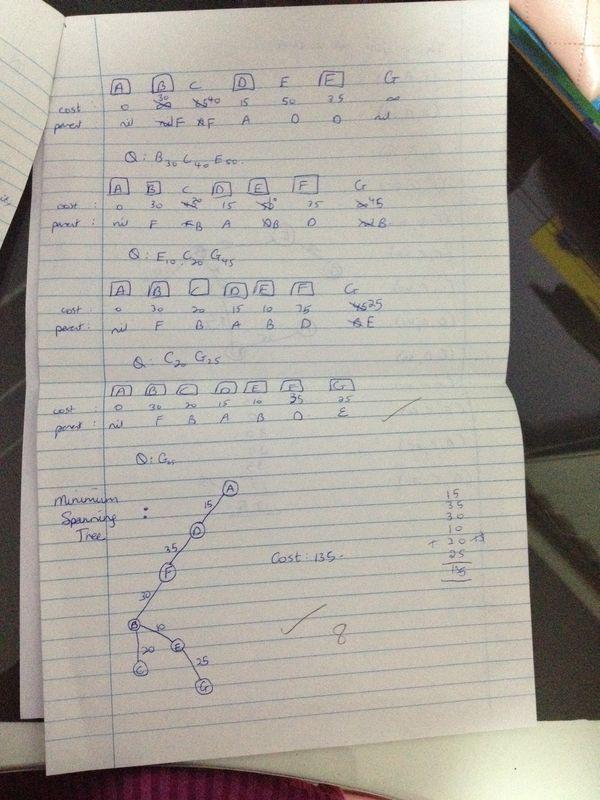 A B C D E F G
cost : 0 30 40 15 50 35 ∞
parent : nil F F A D D nil
Q : B30 C40 E50.
A B C D E F G
cost : 0 30 20 15 10 35 45
parent : nil F B A B D B
Q : E10 C20 G45
A B C D E F G
cost : 0 30 20 15 10 35 25
parent : nil F B A B D E
Q : C20 G25
A B C D E F G
cost : 0 30 20 15 10 35 25
parent : nil F B A B D E
Q : G25
Minimum
Spanning :
Tree
A
15
D
35
F
30
B
10
20
E
C
25
G
Cost : 135.
15
35
30
10
+ 20
25
135
8